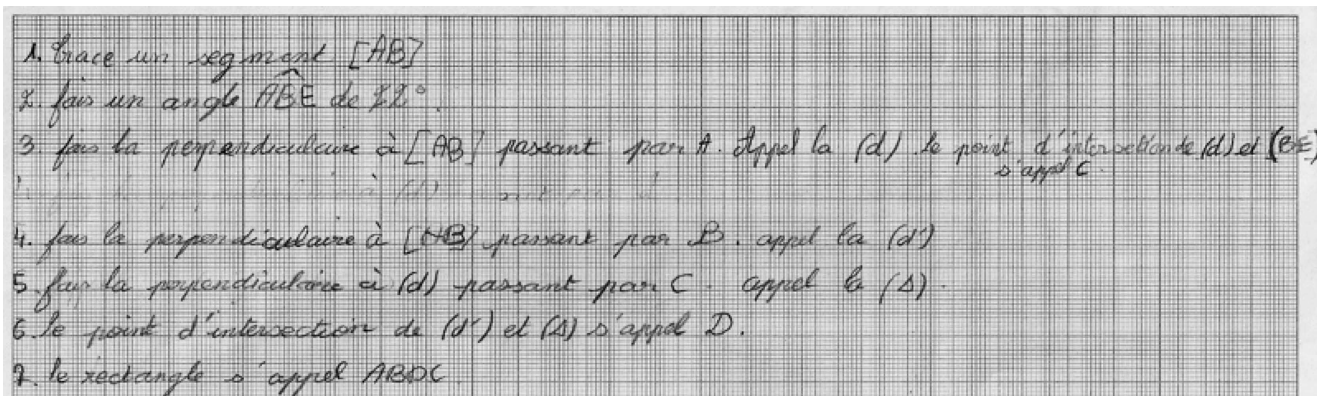 1. trace un segment [AB]
2. fais un angle ABE de 22°.
3. fais la perpendiculaire à [AB] passant par A. Appel la (d). le point d'intersection de (d) et [BE)
s'appel C.
4. fais la perpendiculaire à [AB] passant par B. appel la (d')
5. fais la perpendiculaire à (d) passant par C. appel la (Δ).
6. le point d'intersection de (d') et (Δ) s'appel D.
7. le rectangle s'appel ABDC